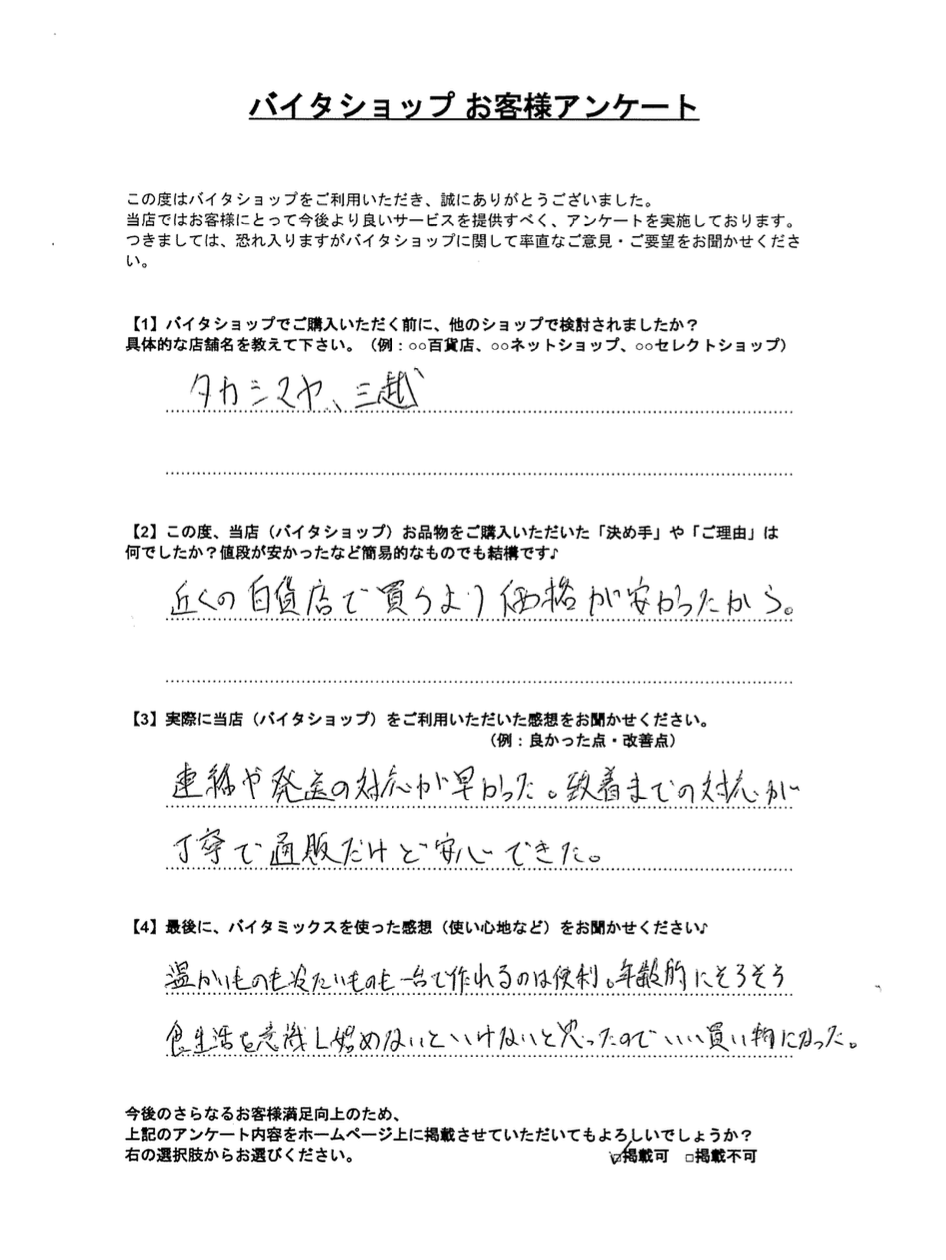 バイタショップ お客様アンケート
この度はバイタショップをご利用いただき、誠にありがとうございました。
当店ではお客様にとって今後より良いサービスを提供すべく、アンケートを実施しております。
つきましては、恐れ入りますがバイタショップに関して率直なご意見・ご要望をお聞かせくださ
い。
【1】バイタショップでご購入いただく前に、他のショップで検討されましたか？
具体的な店舗名を教えて下さい。（例：○○百貨店、○○ネットショップ、○○セレクトショップ）
タカシマヤ、三越
【2】この度、当店（バイタショップ）お品物をご購入いただいた「決め手」や「ご理由」は
何でしたか？値段が安かったなど簡易的なものでも結構です♪
近くの百貨店で買うより価格が安かったから。
【3】実際に当店（バイタショップ）をご利用いただいた感想をお聞かせください。
（例：良かった点・改善点）
連絡や発送の対応が早かった。到着までの対応が
丁寧で通販だけど安心できた。
【4】最後に、バイタミックスを使った感想（使い心地など）をお聞かせください♪
温かいものも冷たいものも一台で作れるのは便利。年齢的にそろそろ
食生活を意識し始めないといけないと思ったのでいい買い物になった。
今後のさらなるお客様満足向上のため、
上記のアンケート内容をホームページ上に掲載させていただいてもよろしいでしょうか？
右の選択肢からお選びください。 ☑掲載可 □掲載不可